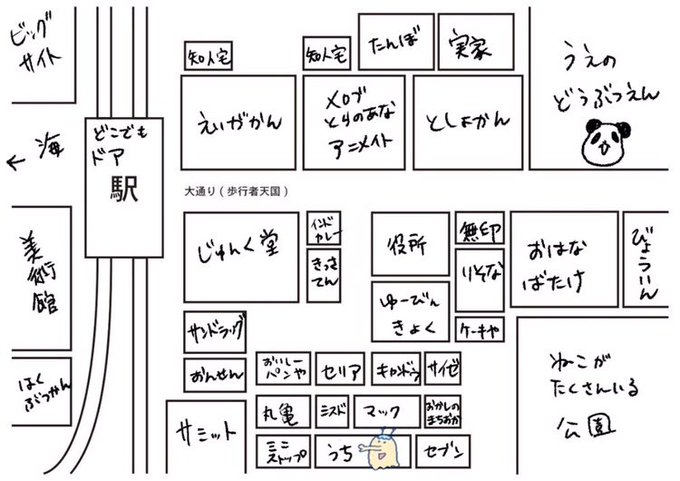 ビッグ
サイト
知人宅
知人宅
たんぼ
実家
うえの
どうぶつえん
えいがかん
メロブ
とらのあな
アニメイト
としょかん
← 海
どこでも
ドア
駅
大通り(歩行者天国)
美術館
じゅんく堂
インド
カレー
きっさ
てん
役所
無印
りそな
おはな
ばたけ
びょういん
ゆーびん
きょく
ケーキや
サンドラッグ
おんせん
はく
ぶつかん
おいしー
パンや
セリア
キャンドゥ
サイゼ
ねこが
たくさんいる
公園
サミット
丸亀
ミスド
マック
おかしの
まちおか
ミニ
ストップ
うち
セブン